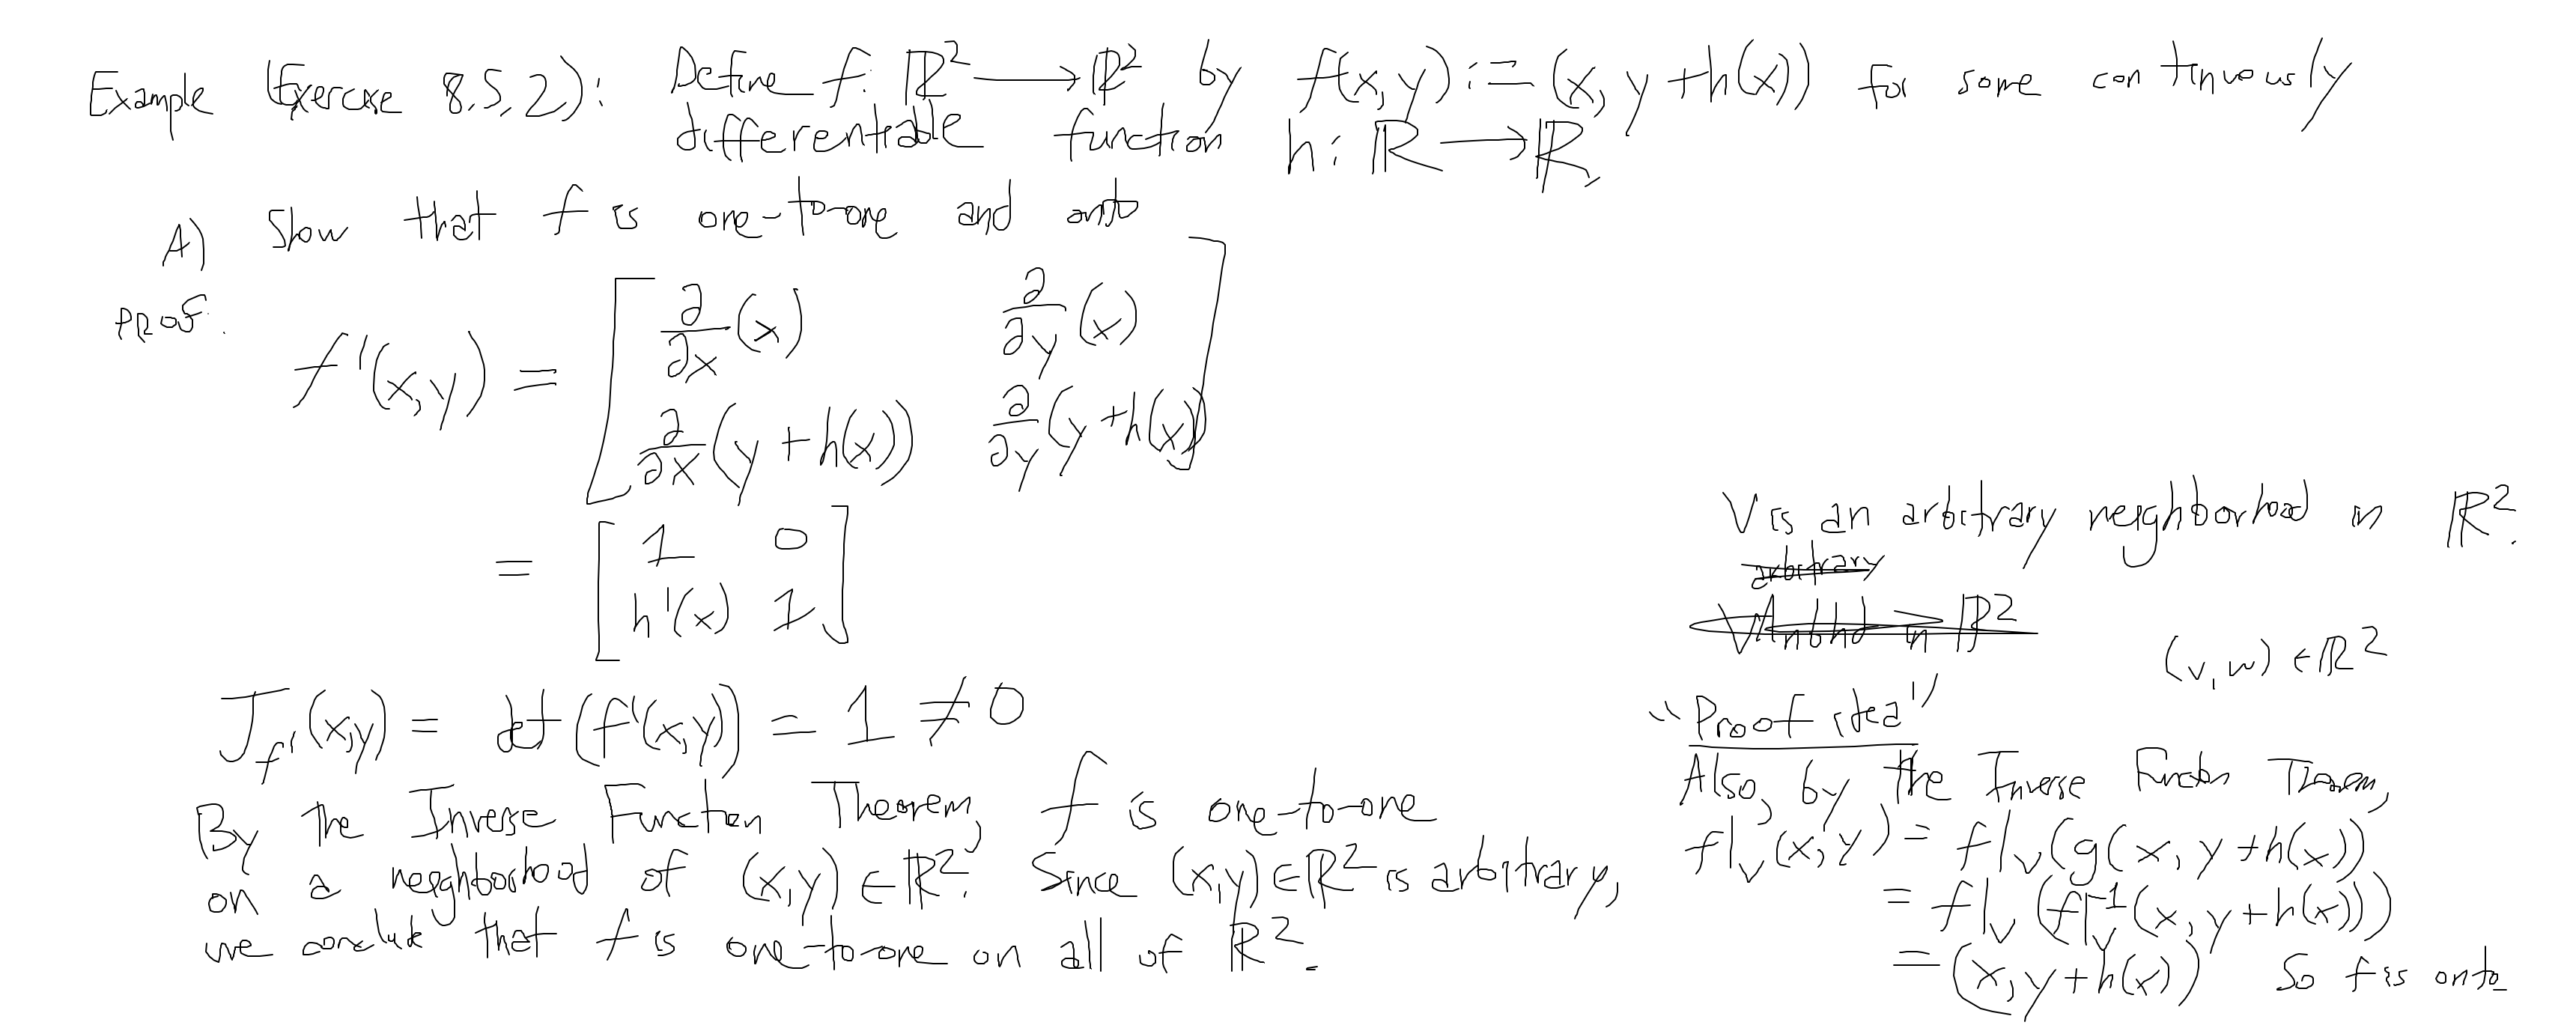 Example (Exercise 8.5.2): Define f: ℝ² → ℝ² by f(x,y) := (x, y+h(x)) for some continuously
differentiable function h: ℝ → ℝ.
A) Show that f is one-to-one and onto
PROOF.
f'(x,y) = [ ∂/∂x (x)   ∂/∂y (x)
∂/∂x (y+h(x))   ∂/∂y (y+h(x)) ]
= [ 1   0
h'(x)   1 ]
J_f'(x,y) = det(f'(x,y)) = 1 ≠ 0
By the Inverse Function Theorem, f is one-to-one
on a neighborhood of (x,y) ∈ ℝ². Since (x,y) ∈ ℝ² is arbitrary,
we conclude that f is one-to-one on all of ℝ².
V is an arbitrary neighborhood in ℝ².
arbitrary
V nbhd in ℝ²
(v,w) ∈ ℝ²
"Proof idea"
Also, by the Inverse Function Theorem,
f|_V(x,y) = f|_V(g(x, y+h(x))
= f|_V(f|_V⁻¹(x, y+h(x)))
= (x, y+h(x)) So f is onto